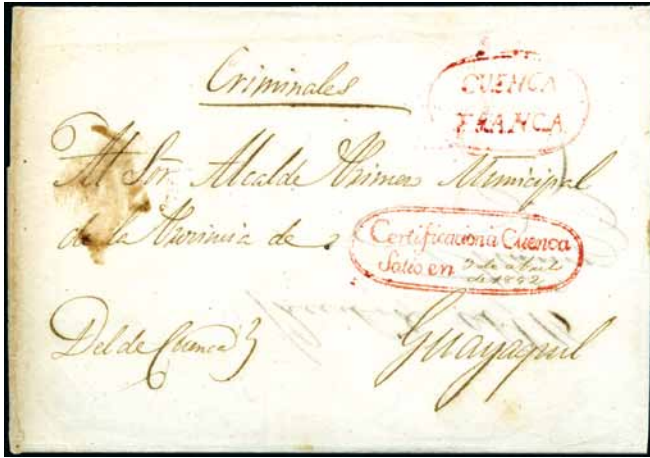 Criminales
CUENCA
FRANCA
Al Sor. Alcalde Primero Municipal
de la Provincia de
Certificacion á Cuenca
Salio en 9 de abril
de 1852
Del de Cuenca
Guayaquil